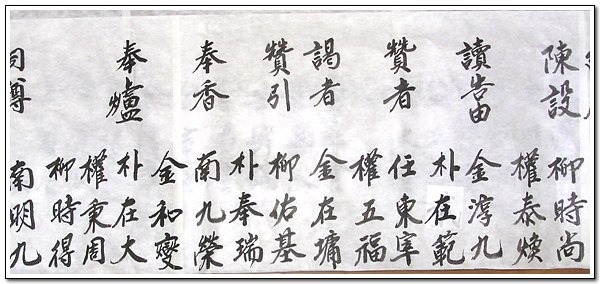 陳設
柳時尚
權泰煥
讀告由
金淳九
朴在範
贊者
任東宰
權五福
謁者
金在墉
贊引
柳佑基
朴奉瑞
奉香
南九榮
金和燮
奉爐
朴在大
權秉周
柳時得
司罇
南明九